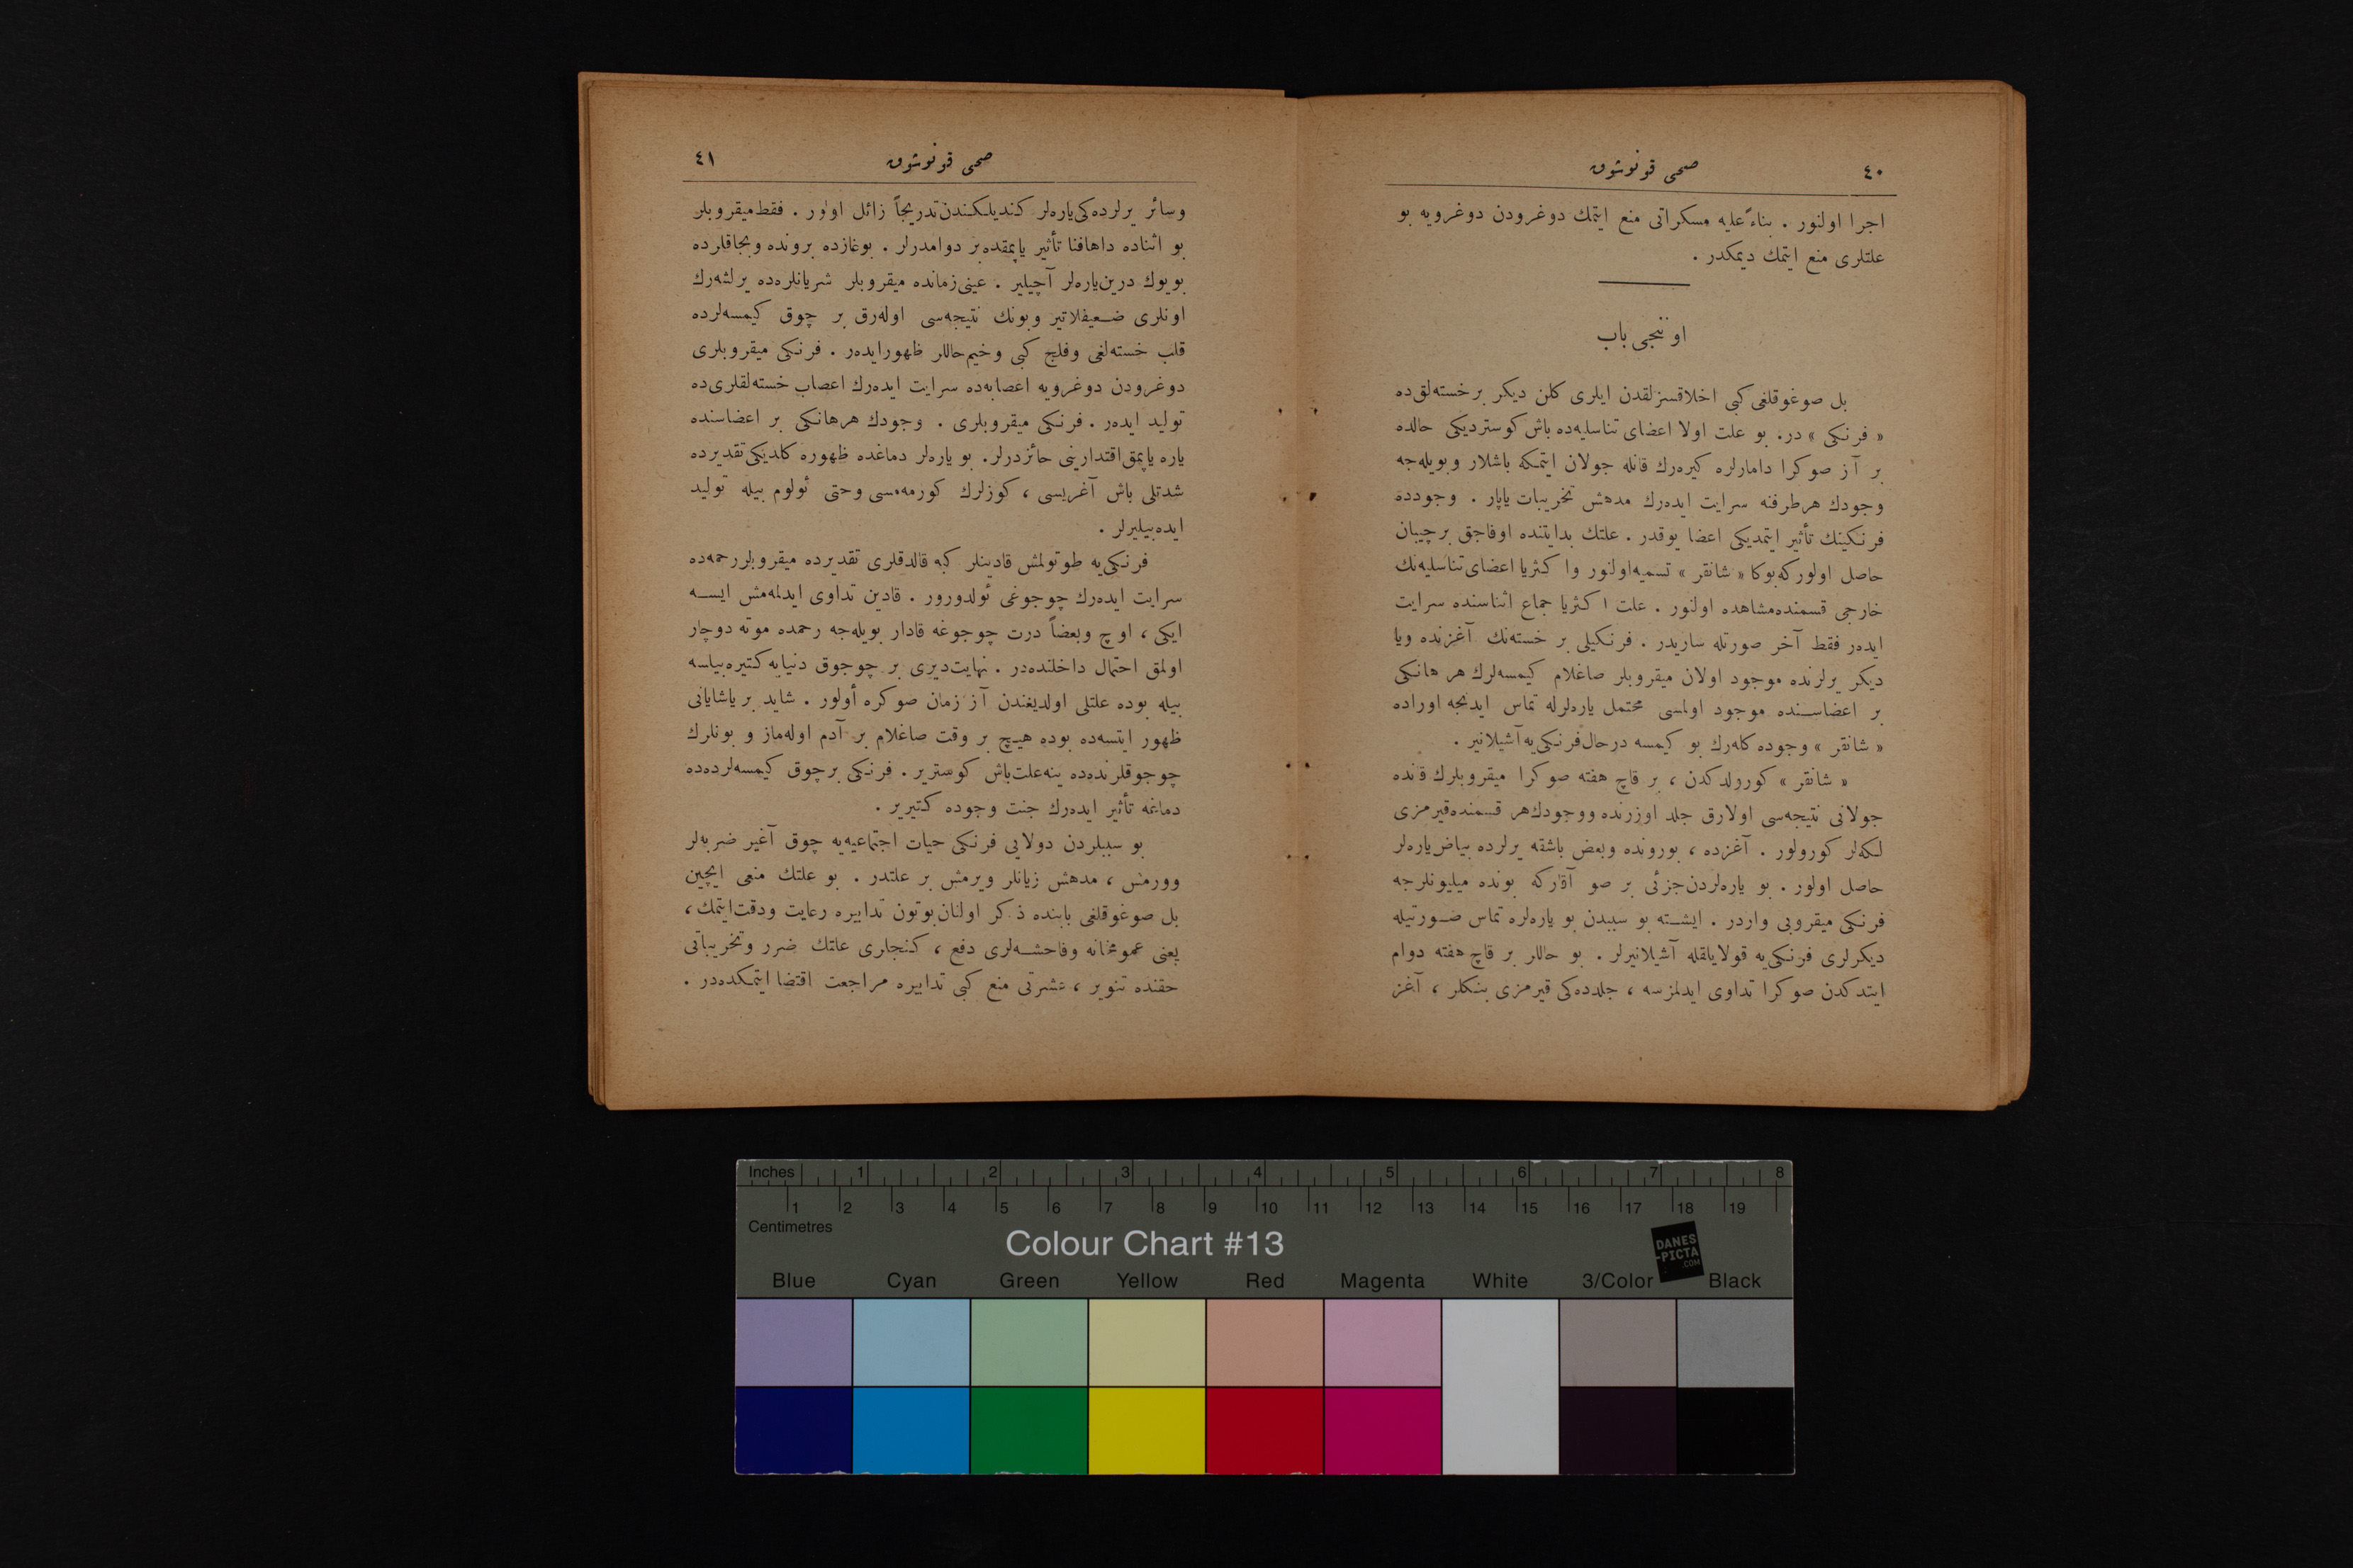 ٤٠
صحی قونوشوق
اجرا اولنور . بناءً علیه مسكراتی منع ایتمك دوغرودن دوغرویه بو
علتلری منع ایتمك دیمكدر .
اوننجی باب
بل صوغوقلغی كبی اخلاقسزلقدن ایلری كلن دیكر بر خسته‌لق ده
« فرنكی » در. بو علت اولا اعضای تناسلیه‌ده باش كوستردیكی حالده
بر آز صوكرا دامارلره كیره‌رك قانله جولان ایتمكه باشلار و بویله‌جه
وجودك هر طرفنه سرایت ایده‌رك مدهش تخریبات یاپار . وجودده
فرنكینك تأثیر ایتمدیكی اعضا یوقدر . علتك بدایتنده اوفاجق بر چیبان
حاصل اولور كه بوكا « شانقر » تسمیه اولنور وا كثریا اعضای تناسلیه‌نك
خارجی قسمنده مشاهده اولنور . علت ا كثریا جماع اثناسنده سرایت
ایده‌ر فقط آخر صورتله ساریدر . فرنكیلی بر خسته‌نك آغزنده ویا
دیكر یرلرنده موجود اولان میقروبلر صاغلام كیمسه‌لرك هر هانكی
بر اعضاسنده موجود اولمسی محتمل یاره‌لرله تماس ایدنجه اوراده
« شانقر » وجوده كله‌رك بو كیمسه درحال فرنكی‌یه آشیلانیر .
« شانقر » كورولدكدن ، بر قاچ هفته صوكرا میقروبلرك قانده
جولانی نتیجه‌سی اولارق جلد اوزرنده ووجودك هر قسمنده قیرمزی
لكه‌لر كورولور . آغزده ، بورونده وبعض باشقه یرلرده بیاض یاره‌لر
حاصل اولور . بو یاره‌لردن جزئی بر صو آقار كه بونده میلیونلرجه
فرنكی میقروبی واردر . ایشته بو سببدن بو یاره‌لره تماس صورتیله
دیكرلری فرنكی‌یه قولایلقله آشیلانیرلر . بو حاللر بر قاچ هفته دوام
ایتدكدن صوكرا تداوی ایدلمزسه ، جلدده‌كی قیرمزی بنكلر ، آغز
صحی قونوشوق
٤١
وسائر یرلرده‌كی یاره‌لر كندیلكندن تدریجاً زائل اولور . فقط میقروبلر
بو اثناده داها فنا تأثیر یاپمقده بر دوامدرلر . بوغازده برونده وبجاقلرده
بویوك درین یاره‌لر آچیلیر . عینی زمانده میقروبلر شریانلره‌ده یرلشه‌رك
اونلری ضعیفلاتیر وبونك نتیجه‌سی اوله‌رق بر چوق كیمسه‌لرده
قلب خسته‌لغی وفلج كبی وخیم حاللر ظهور ایده‌ر . فرنكی میقروبلری
دوغرودن دوغرویه اعصابه‌ده سرایت ایده‌رك اعصاب خسته‌لقلری ده
تولید ایده‌ر . فرنكی میقروبلری . وجودك هر هانكی بر اعضاسنده
یاره یاپمق اقتدارینی حائزدرلر. بو یاره‌لر دماغده ظهوره كلدیكی تقدیرده
شدتلی باش آغریسی ، كوزلرك كورمه‌مسی وحتی ئولوم بیله تولید
ایده‌بیلیرلر .
فرنكی‌یه طوتولمش قادینلر كبه قالدقلری تقدیرده میقروبلر رحمه‌ده
سرایت ایده‌رك چوجوغی ئولدورور . قادین تداوی ایدلمه‌مش ایسه
ایكی ، اوچ وبعضاً درت چوجوغه قادار بویله‌جه رحمده موته دوچار
اولمق احتمال داخلنده‌در . نهایت دیری بر چوجوق دنیایه كتیره‌بیلسه
بیله بوده علتلی اولدیغندن آز زمان صوكره أولور . شاید بر یاشایانی
ظهور ایتسه‌ده بوده هیچ بر وقت صاغلام بر آدم اوله‌ماز و بونلرك
چوجوقلرنده‌ده ینه علت باش كوستریر . فرنكی بر چوق كیمسه‌لرده‌ده
دماغه تأثیر ایده‌رك جنت وجوده كتیریر .
بو سببلردن دولایی فرنكی حیات اجتماعیه‌یه چوق آغیر ضربه‌لر
وورمش ، مدهش زیانلر ویرمش بر علتدر . بو علتك منعی ایچین
بل صوغوقلغی بابنده ذكر اولنان بوتون تدابیره رعایت ودقت ایتمك ،
یعنی عمومخانه وفاحشه‌لری دفع ، كنجلری علتك ضرر وتخریباتی
حقنده تنویر ، عشرتی منع كبی تدابیره مراجعت اقتضا ایتمكده‌در .
Inches 1 2 3 4 5 6 7 8
1 2 3 4 5 6 7 8 9 10 11 12 13 14 15 16 17 18 19
Centimetres
Colour Chart #13
DANES
-PICTA
.COM
Blue Cyan Green Yellow Red Magenta White 3/Color Black